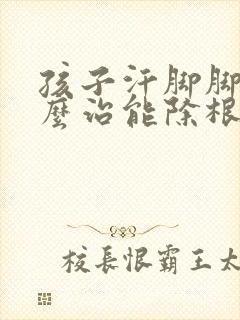 孩子汗脚脚
麼治能除根
校長恨霸王太